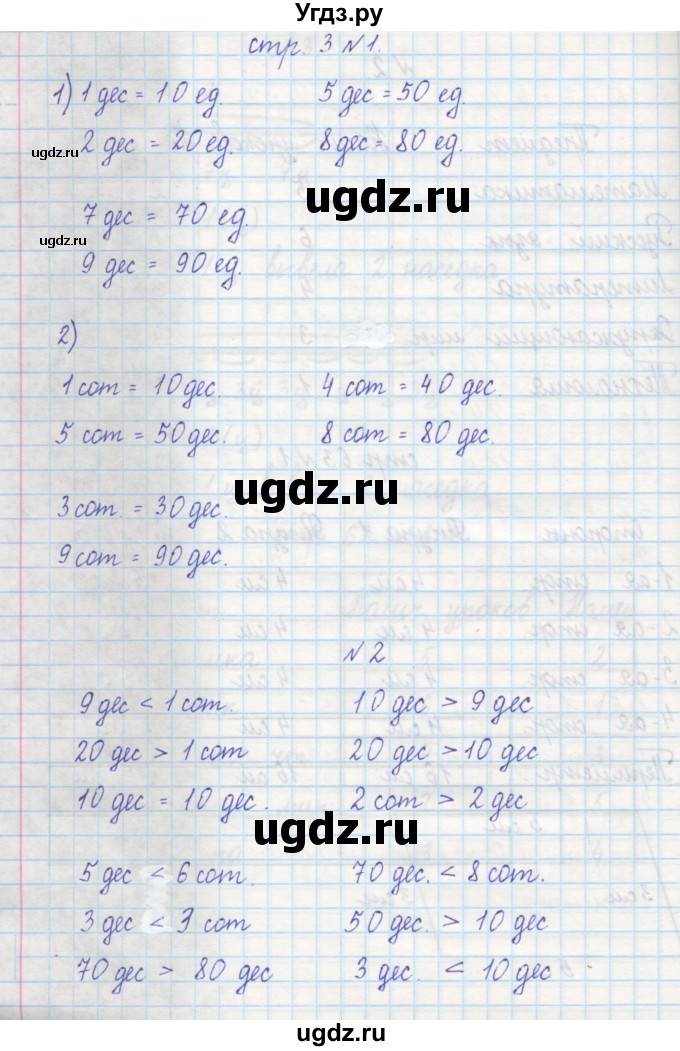 Угдз.ру
стр. 3 №1.
1) 1 дес = 10 ед. 5 дес = 50 ед.
ugdz.ru
2 дес = 20 ед. 8 дес = 80 ед.
ugdz.ru
7 дес = 70 ед.
ugdz.ru
9 дес = 90 ед.
2)
1 сот = 10 дес. 4 сот = 40 дес.
5 сот = 50 дес. 8 сот = 80 дес.
ugdz.ru
3 сот. = 30 дес.
9 сот = 90 дес.
№ 2
9 дес < 1 сот. 10 дес > 9 дес
20 дес > 1 сот 20 дес > 10 дес
10 дес = 10 дес. 2 сот > 2 дес
ugdz.ru
5 дес < 6 сот. 70 дес. < 8 сот.
3 дес < 3 сот 50 дес. > 10 дес
70 дес > 80 дес 3 дес. < 10 дес
ugdz.ru